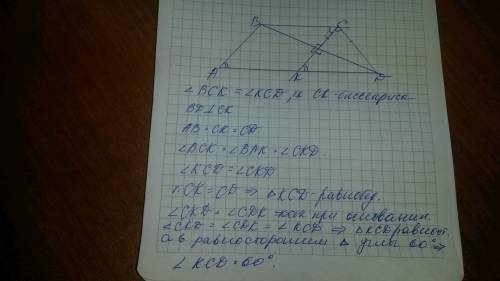 B C
A K D
∠BCK = ∠KCD, т.к CK - биссектриса
BD⊥CK
AB = CK = CD
∠BCK = ∠BAK = ∠CKD
∠KCD = ∠CKD
т.CK = CD ⇒ ΔKCD - равнобед.
∠CKD = ∠CDK как при основании.
∠CKD = ∠CDK = ∠KCD ⇒ ΔKCD равност.
а в равностороннем Δ углы 60° ⇒
∠KCD = 60°.